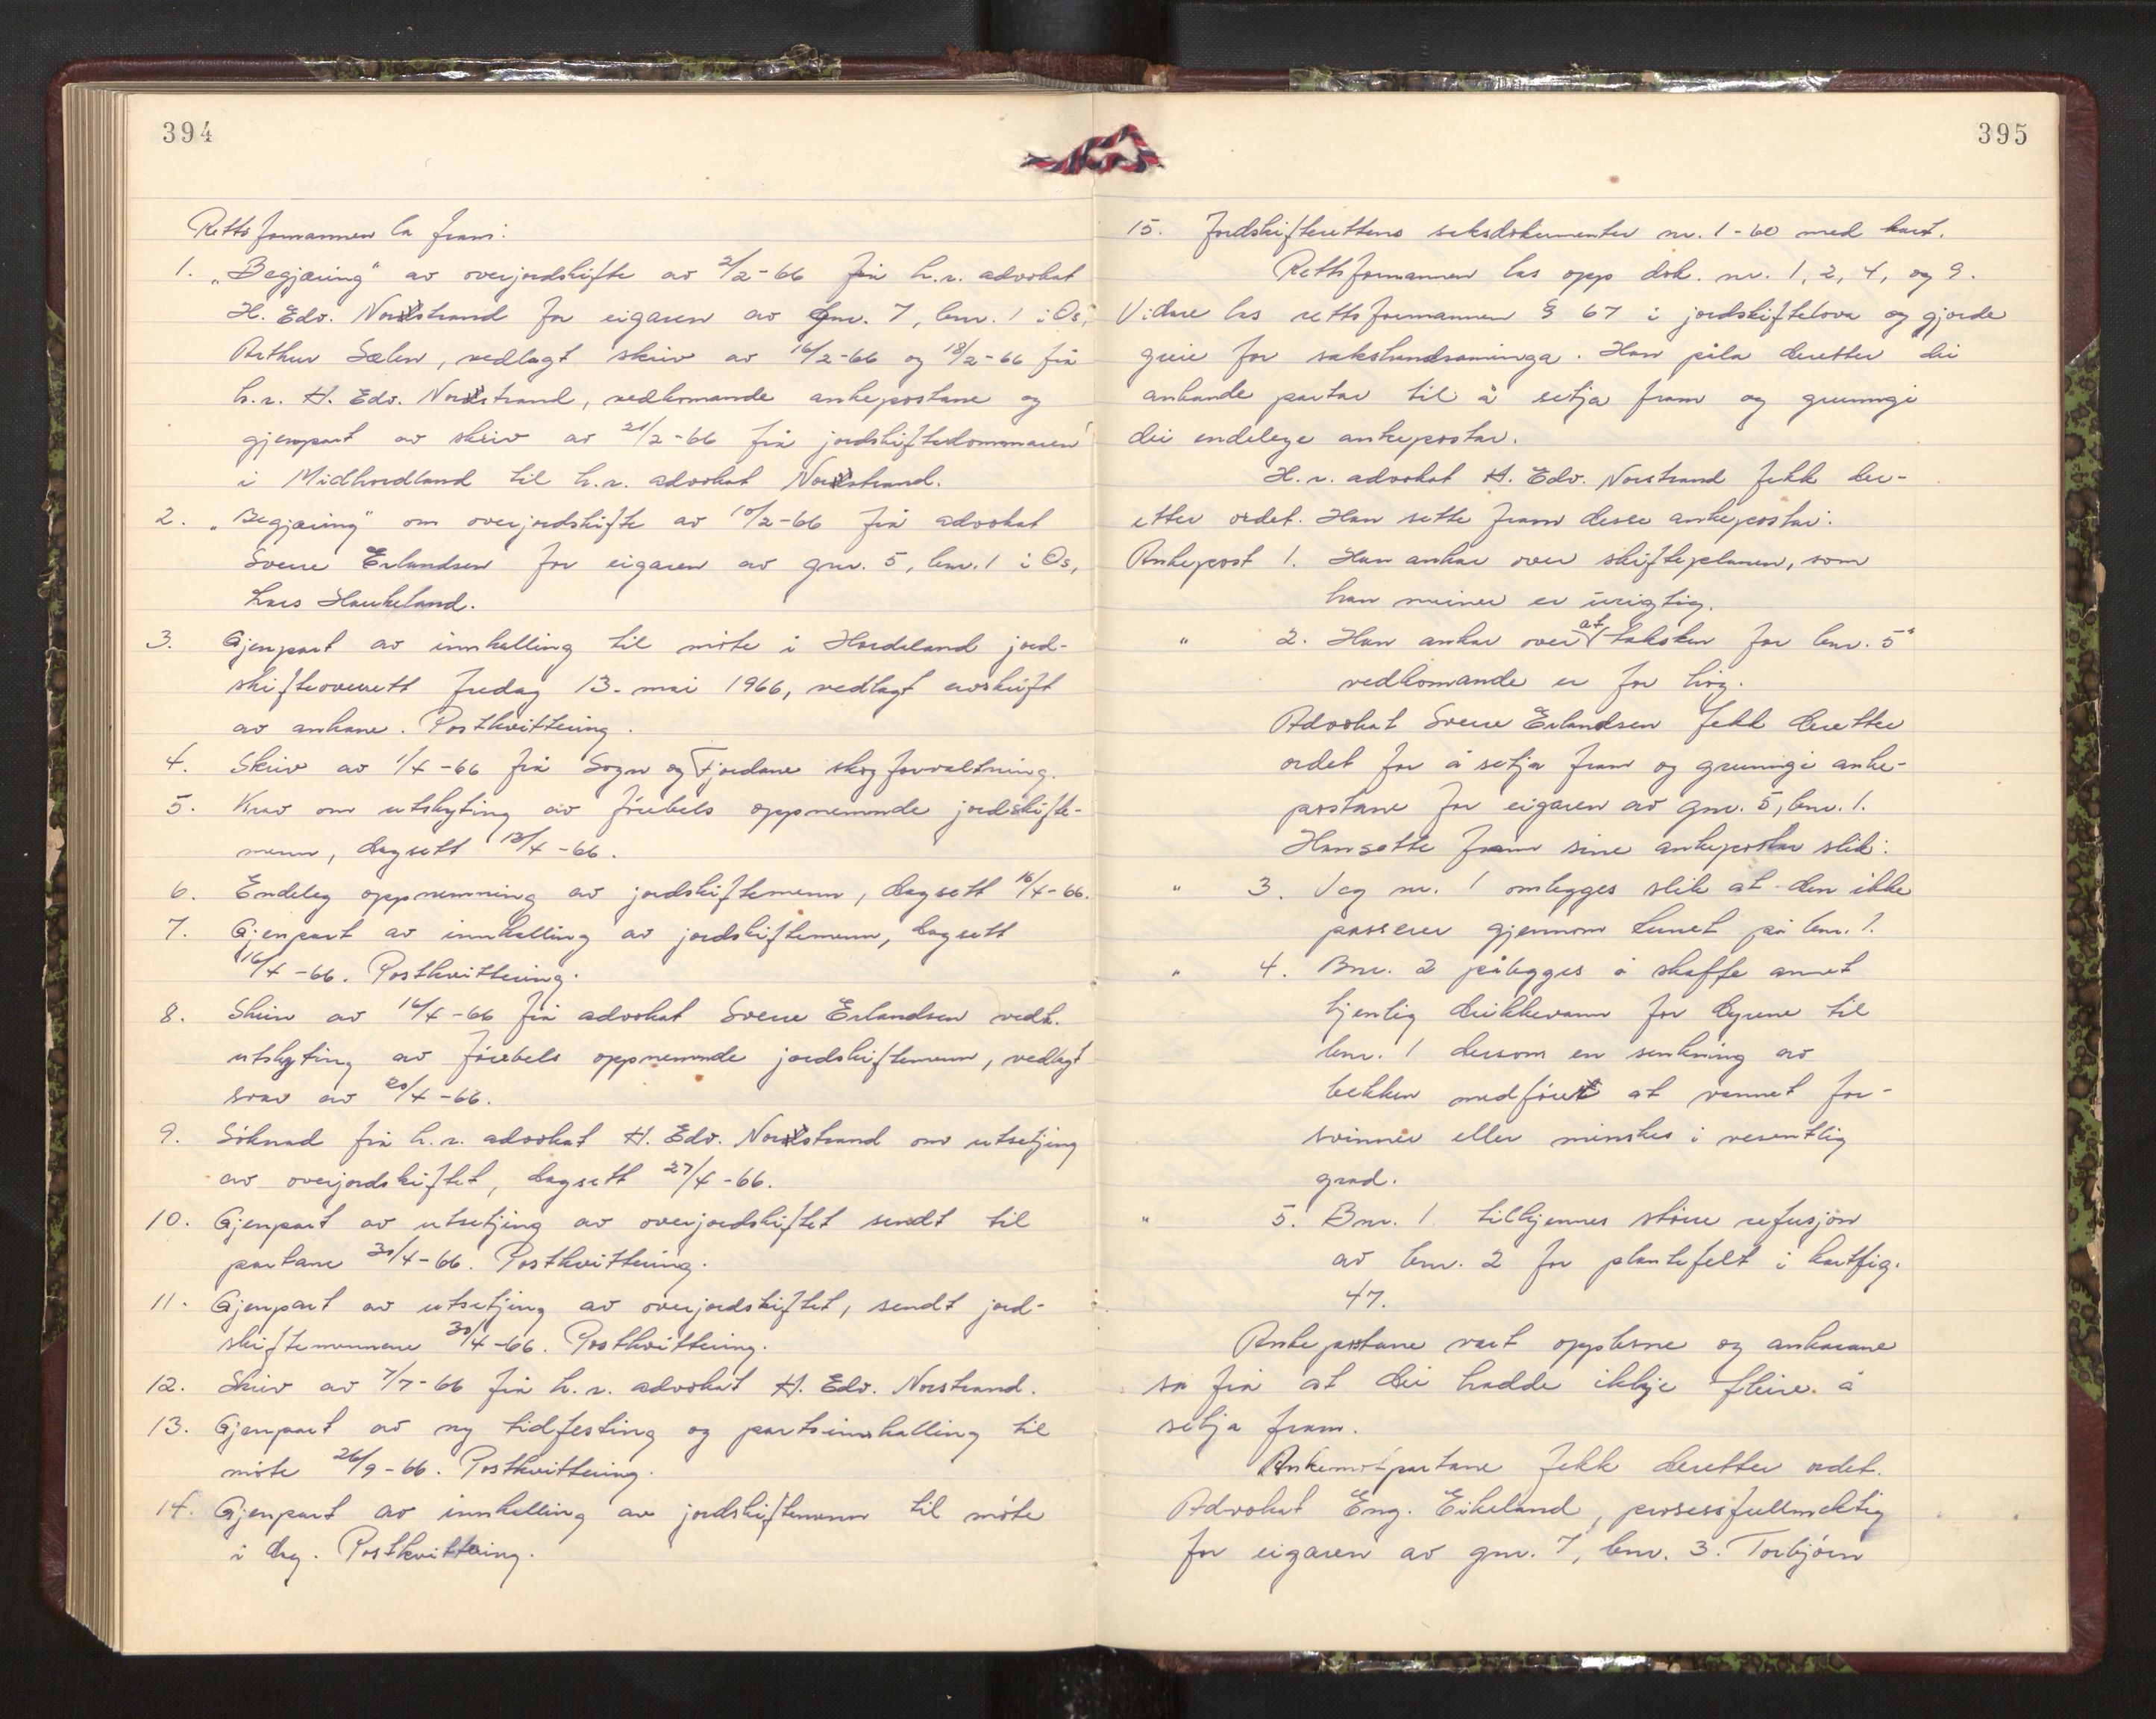 394
Rettsformannen la fram:
1. „Begjæring" av overjordskifte av 2/2-66 frå h.r. advokat
H. Edv. Norstrand for eigaren av gnr. 7, bnr. 1 i Os,
Arthur Sælen, vedlagt skriv av 16/2-66 og 18/2-66 frå
h.r. H. Edv. Norstrand, vedkomande ankepostane og
gjenpart av skriv av 21/2-66 frå jordskiftedommaren
i Midhordland til h.r. advokat Norstrand.
2. „Begjæring" om overjordskifte av 10/2-66 frå advokat
Sverre Erlandsen for eigaren av gnr. 5, bnr. 1 i Os,
Lars Haukeland.
3. Gjenpart av innkalling til møte i Hordaland jord-
skifteoverrett fredag 13. mai 1966, vedlagt avskrift
av ankane. Postkvittering.
4. Skriv av 1/4-66 frå Sogn og Fjordane skogforvaltning.
5. Krav om utskyting av førebels oppnemnde jordskifte-
menn, dagsett 13/4-66.
6. Endeleg oppnemning av jordskiftemenn, dagsett 16/4-66.
7. Gjenpart av innkalling av jordskiftemenn, dagsett
16/4-66. Postkvittering.
8. Skriv av 16/4-66 frå advokat Sverre Erlandsen vedk.
utskyting av førebels oppnemnde jordskiftemenn, vedlagt
svar av 20/4-66.
9. Søknad frå h.r. advokat H. Edv. Norstrand om utsetjing
av overjordskiftet, dagsett 27/4-66.
10. Gjenpart av utsetjing av overjordskiftet sendt til
partane 30/4-66. Postkvittering.
11. Gjenpart av utsetjing av overjordskiftet, sendt jord-
skiftemennene 30/4-66. Postkvittering.
12. Skriv av 7/7-66 frå h.r. advokat H. Edv. Norstrand.
13. Gjenpart av ny tidfesting og partsinnkalling til
møte 26/9-66. Postkvittering.
14. Gjenpart av innkalling av jordskiftemenn til møte
i dag. Postkvittering.
395
15. Jordskifterettens saksdokumenter nr. 1-60 med kart.
Rettsformannen las opp dok. nr. 1, 2, 4, og 9.
Vidare las rettsformannen § 67 i jordskiftelova og gjorde
greie for sakshandsaminga. Han påla deretter dei
ankande partar til å setja fram og grunngi
dei endelege ankepostar.
H.r. advokat H. Edv. Norstrand fekk der-
etter ordet. Han sette fram desse ankepostar:
Ankepost 1. Han ankar over skifteplanen, som
han meiner er uriktig.
" 2. Han ankar over at taksten for bnr. 5
vedkomande er for høg.
Advokat Sverre Erlandsen fekk deretter
ordet for å setja fram og grunngi anke-
postane for eigaren av gnr. 5, bnr. 1.
Han sette fram sine ankepostar slik:
" 3. Veg nr. 1 omlegges slik at den ikke
passerer gjennom tunet på bnr. 1.
" 4. Bnr. 2 pålegges å skaffe annet
tjenlig drikkevann for dyrene til
bnr. 1 dersom en senkning av
bekken medfører at vannet for-
svinner eller minskes i vesentlig
grad.
" 5. Bnr. 1 tilkjennes større refusjon
av bnr. 2 for plantefelt i kartfig.
47.
Ankepostane vart opplesne og ankarane
sa frå at dei hadde ikkje fleire å
setja fram.
Ankemotpartane fekk deretter ordet.
Advokat Eng. Eikeland, prosessfullmektig
for eigaren av gnr. 7, bnr. 3. Torbjørn